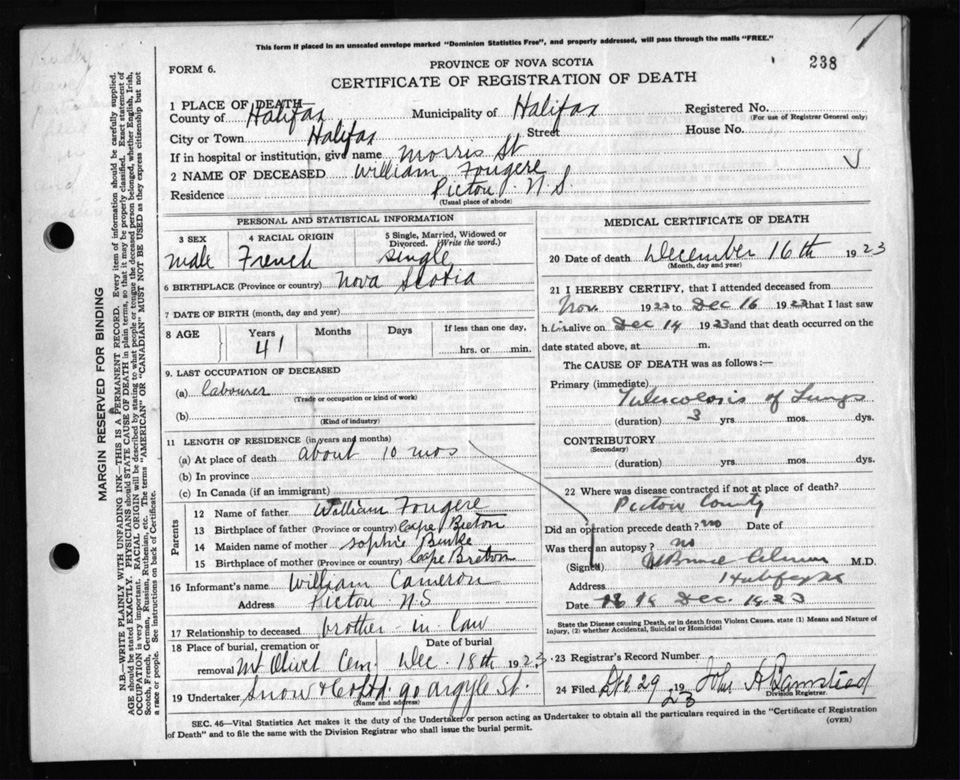 This form if placed in an unsealed envelope marked "Dominion Statistics Free", and properly addressed, will pass through the mails "FREE."
FORM 6.
PROVINCE OF NOVA SCOTIA
238
CERTIFICATE OF REGISTRATION OF DEATH
1 PLACE OF DEATH—
County of Halifax Municipality of Halifax Registered No.
(For use of Registrar General only)
City or Town Halifax Street House No.
If in hospital or institution, give name Morris St
2 NAME OF DECEASED William Fougere
Residence Pictou N.S.
(Usual place of abode)
PERSONAL AND STATISTICAL INFORMATION
3 SEX 4 RACIAL ORIGIN 5 Single, Married, Widowed or Divorced. (Write the word.)
male French single
6 BIRTHPLACE (Province or country) Nova Scotia
7 DATE OF BIRTH (month, day and year)
8 AGE Years Months Days If less than one day,
41 hrs. or min.
9. LAST OCCUPATION OF DECEASED
(a) labourer
(Trade or occupation or kind of work)
(b)
(Kind of industry)
11 LENGTH OF RESIDENCE (in years and months)
(a) At place of death about 10 mos
(b) In province
(c) In Canada (if an immigrant)
Parents
12 Name of father William Fougere
13 Birthplace of father (Province or country) Cape Breton
14 Maiden name of mother Sophie Burke
15 Birthplace of mother (Province or country) Cape Breton
16 Informant's name William Cameron
Address Pictou N.S
17 Relationship to deceased brother-in-law
18 Place of burial, cremation or removal Mt Olivet Cem. Date of burial Dec. 18th 1923
19 Undertaker Snow & Co Ltd. 90 Argyle St.
(Name and address)
MEDICAL CERTIFICATE OF DEATH
20 Date of death December 16th 1923
(Month, day and year)
21 I HEREBY CERTIFY, that I attended deceased from
Nov. 1922 to Dec 16 1923 that I last saw
h im alive on Dec 14 1923 and that death occurred on the
date stated above, at m.
The CAUSE OF DEATH was as follows:—
Primary (immediate)
Tuberculosis of Lungs
(duration) 3 yrs. mos. dys.
CONTRIBUTORY
(Secondary)
(duration) yrs. mos. dys.
22 Where was disease contracted if not at place of death?
Pictou County
Did an operation precede death? no Date of
Was there an autopsy? no
(Signed) M.D.
Address Halifax
Date Dec. 1923
State the Disease causing Death, or in death from Violent Causes, state (1) Means and Nature of Injury, (2) whether Accidental, Suicidal or Homicidal
23 Registrar's Record Number
24 Filed Dec 29 1923 John A Barnstead
Division Registrar.
SEC. 46—Vital Statistics Act makes it the duty of the Undertaker or person acting as Undertaker to obtain all the particulars required in the "Certificate of Registration
of Death" and to file the same with the Division Registrar who shall issue the burial permit.
(OVER)
MARGIN RESERVED FOR BINDING
N.B.—WRITE PLAINLY WITH UNFADING INK—THIS IS A PERMANENT RECORD. Every item of information should be carefully supplied.
AGE should be stated EXACTLY. PHYSICIANS should STATE CAUSE OF DEATH in plain terms, so that it may be properly classified. Exact statement of
OCCUPATION is very important. RACIAL ORIGIN will be described by stating to what people or tongue the deceased person belonged, whether English, Irish,
Scotch, French, German, Russian, Ruthenian, etc. The terms "AMERICAN" or "CANADIAN" MUST NOT BE USED as they express citizenship but not
a race or people. See instructions on back of Certificate.